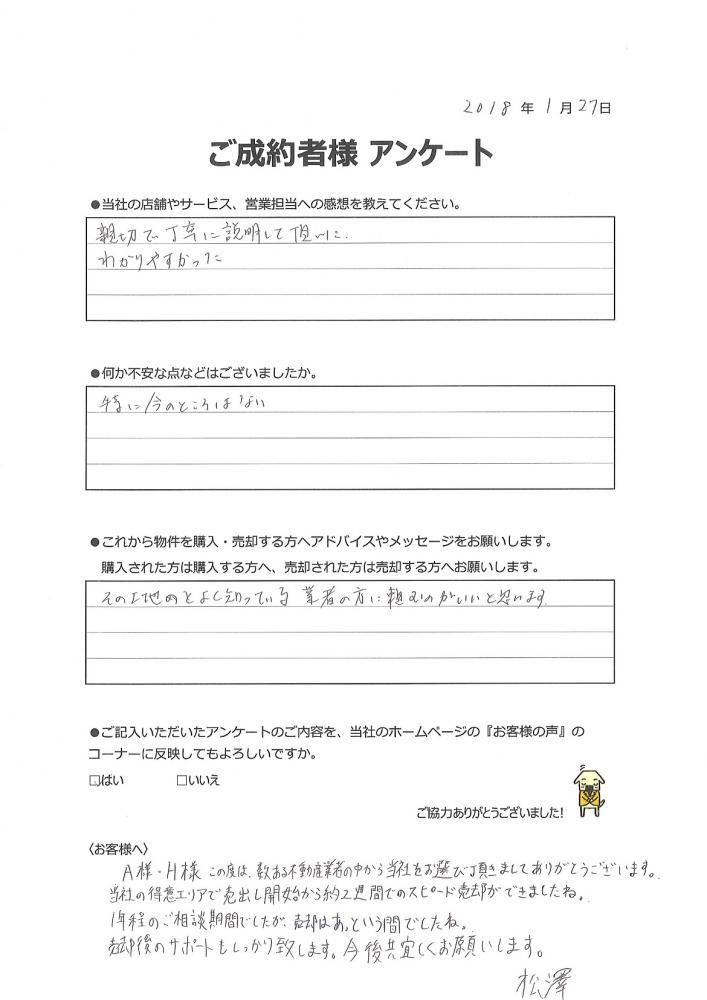 2018 年 1 月 27日
ご成約者様 アンケート
●当社の店舗やサービス、営業担当への感想を教えてください。
親切で丁寧に説明して頂いた.
わかりやすかった
●何か不安な点などはございましたか。
特に今のところはない
●これから物件を購入・売却する方へアドバイスやメッセージをお願いします。
購入された方は購入する方へ、売却された方は売却する方へお願いします。
その土地のことよく知っている 業者の方に頼むのがいいと思います.
●ご記入いただいたアンケートのご内容を、当社のホームページの『お客様の声』の
コーナーに反映してもよろしいですか。
□はい □いいえ
ご協力ありがとうございました!
〈お客様へ〉
A様・H様 この度は、数ある不動産業者の中から当社をお選び頂きましてありがとうございます。
当社の得意エリアで売出し開始から約2週間でのスピード売却ができましたね。
1年程のご相談期間でしたが、売却はあっという間でしたね。
売却後のサポートもしっかり致します。今後共宜しくお願いします。
松澤